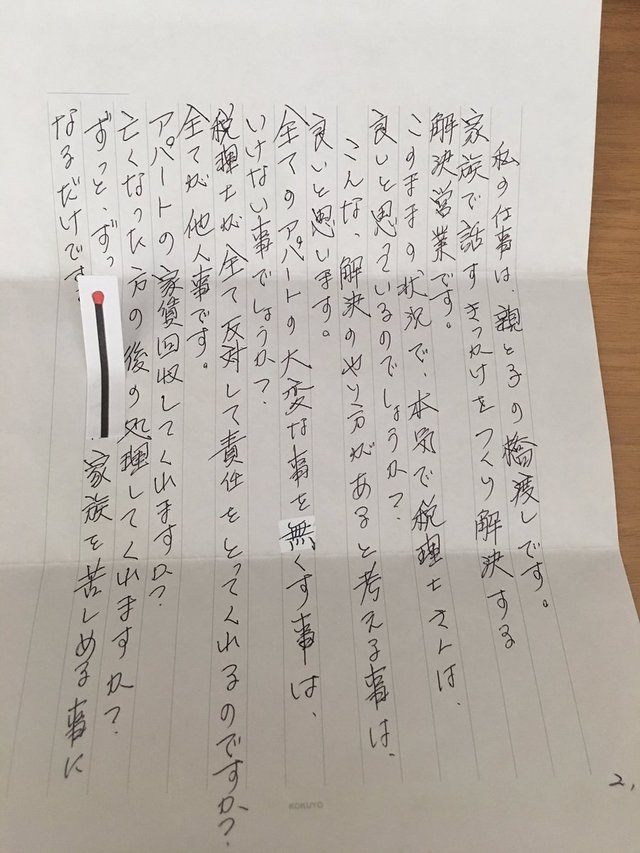 私の仕事は、親と子の橋渡しです。
家族で話すきっかけをつくり解決する
解決営業です。
このままの状況で、本気で税理士さんは、
良いと思っているのでしょうか？
こんな、解決のやり方があると考える事は、
良いと思います。
全てのアパートの大変な事を無くす事は、
いけない事でしょうか？
税理士が全て反対して責任をとってくれるのですか？
全てが他人事です。
アパートの家賃回収してくれますか？
亡くなった方の後の処理してくれますか？
ずっと、ずっ 家族を苦しめる事に
なるだけです
2,
KOKUYO